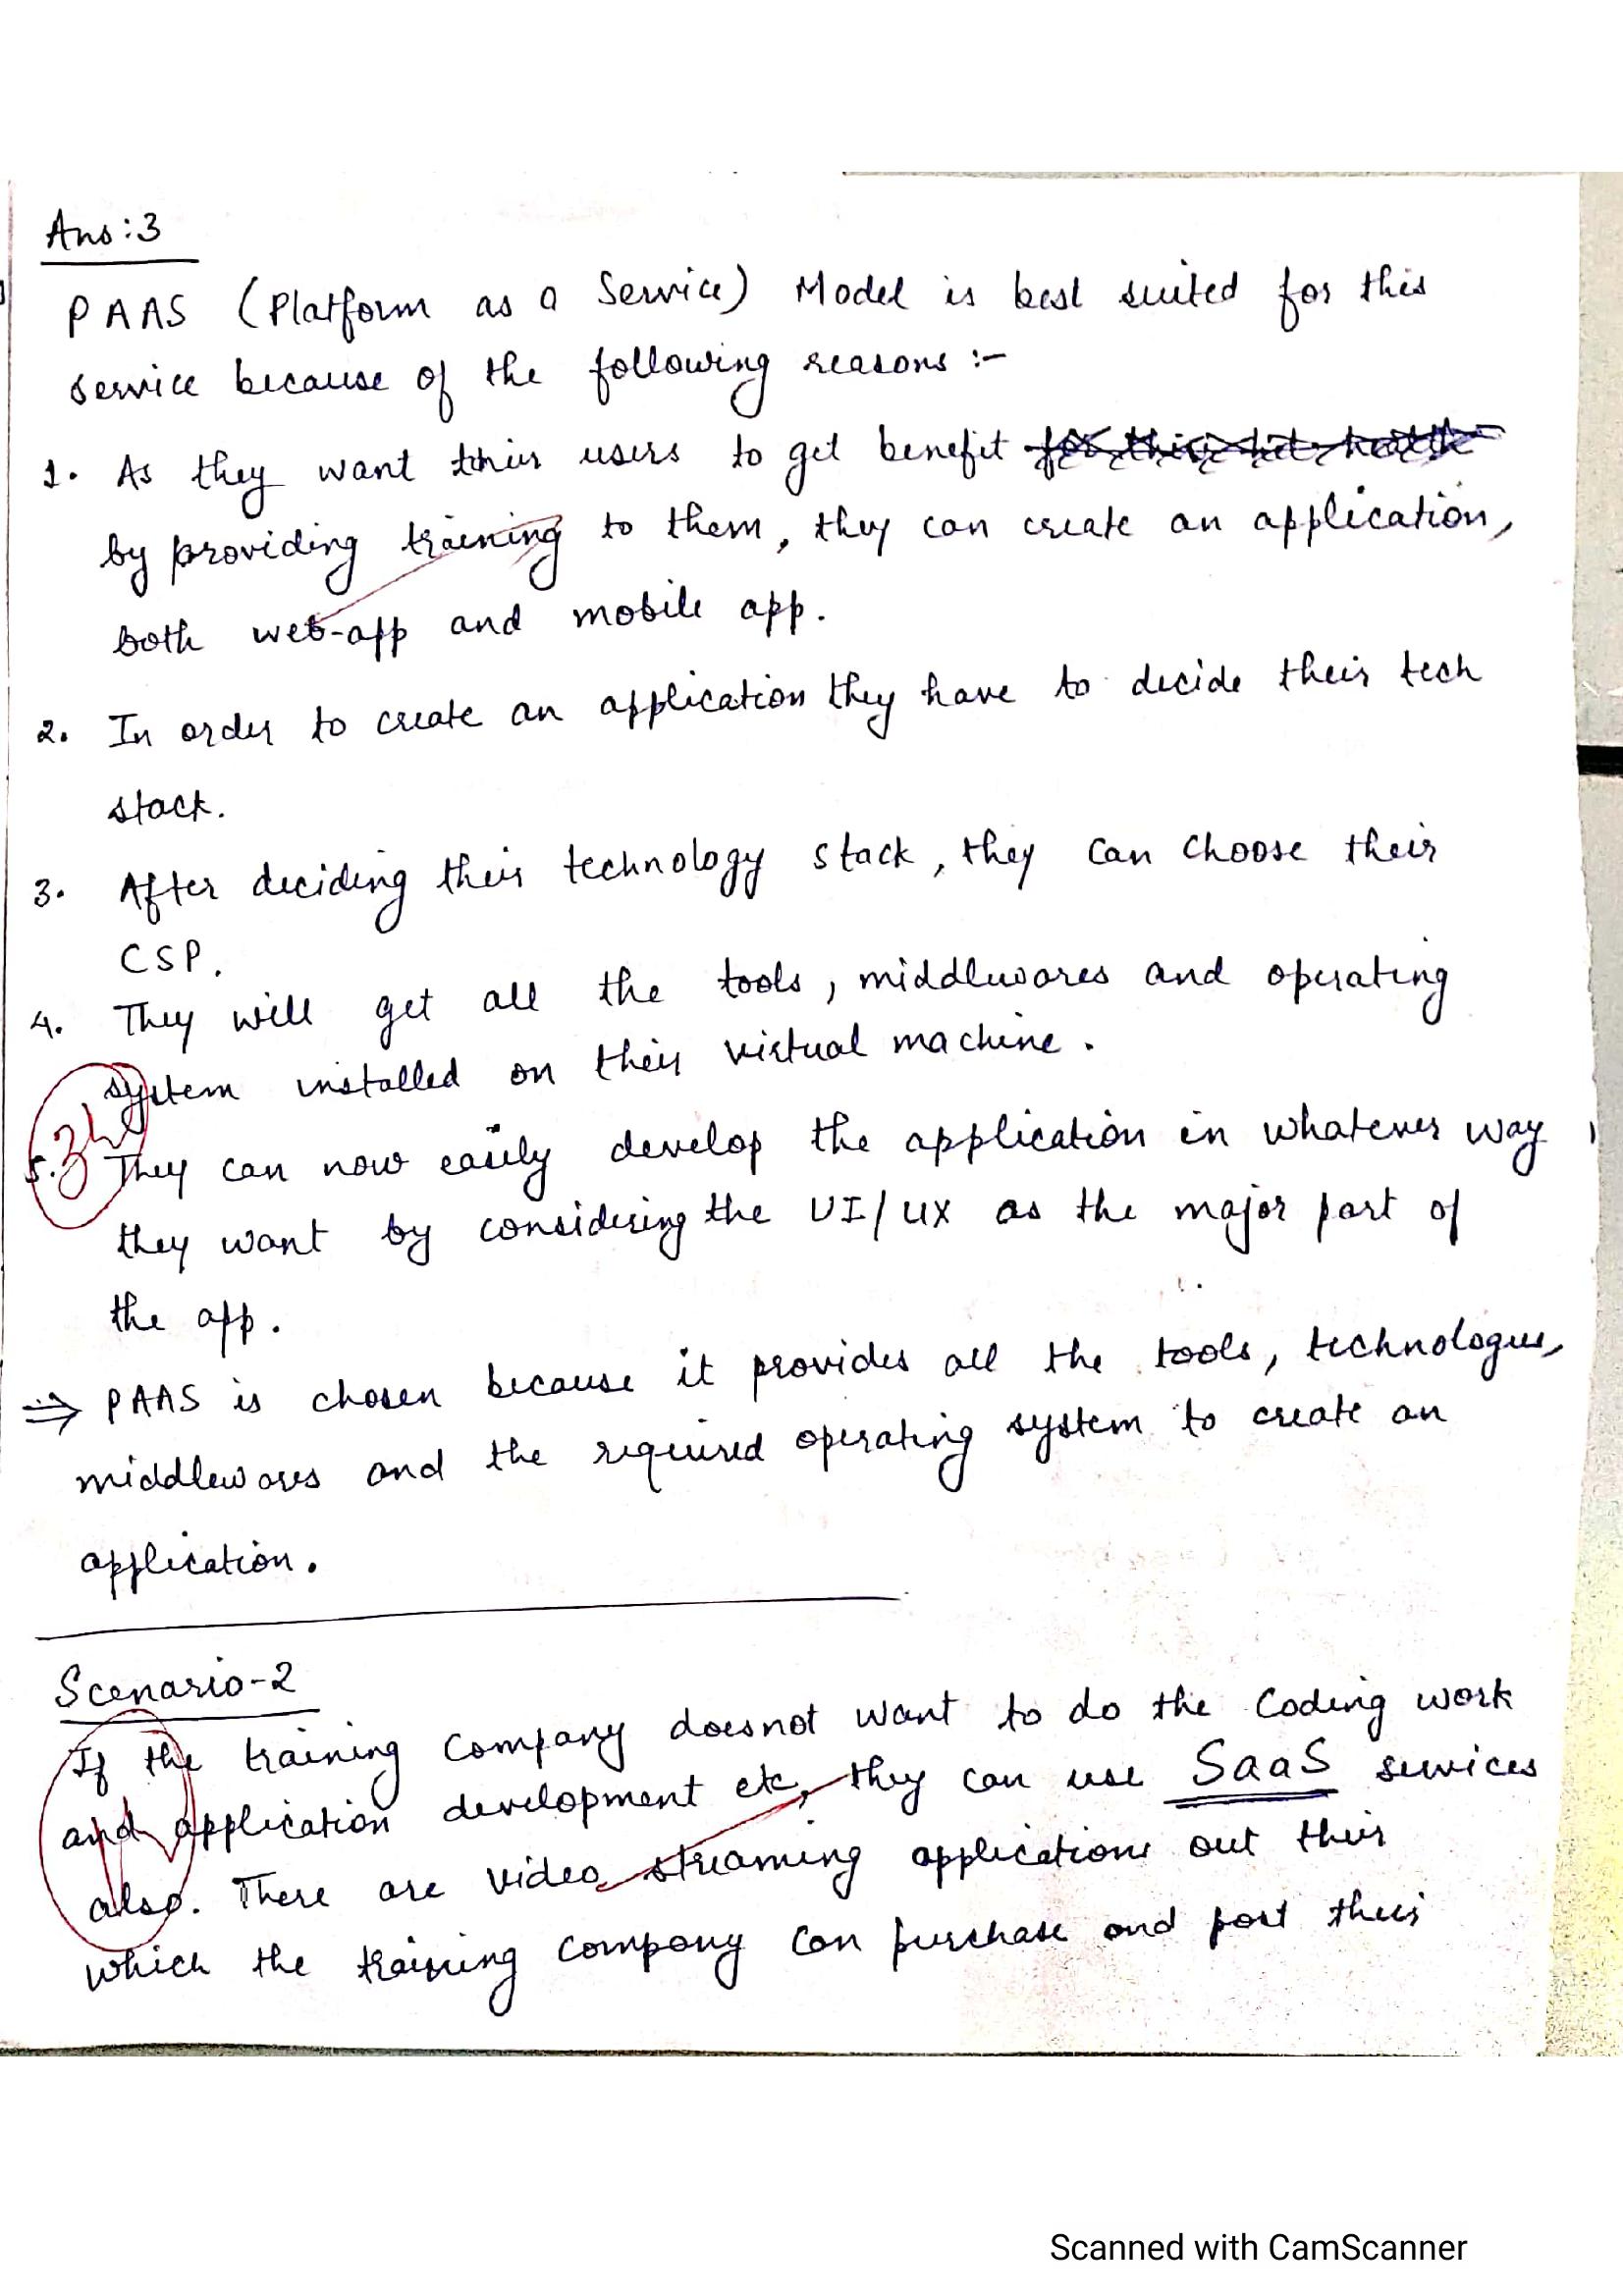 Ans:3
PAAS (Platform as a Service) Model is best suited for this
service because of the following reasons :-
1. As they want their users to get benefit
by providing training to them, they can create an application,
both web-app and mobile app.
2. In order to create an application they have to decide their tech
stack.
3. After deciding their technology stack, they can choose their
CSP.
4. They will get all the tools, middlewares and operating
system installed on their virtual machine.
5. They can now easily develop the application in whatever way
they want by considering the UI/UX as the major part of
the app.
⇒ PAAS is chosen because it provides all the tools, technologies,
middlewares and the required operating system to create an
application.
Scenario-2
If the training company doesnot want to do the coding work
and application development etc, they can use SaaS services
also. There are video streaming applications out their
which the training company can purchase and post their
Scanned with CamScanner